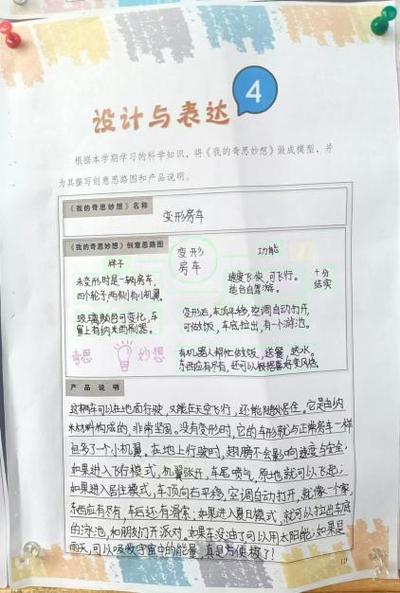 4
设计与表达
根据本学期学习的科学知识，将《我的奇思妙想》做成模型，并
为其撰写创意思路图和产品说明。
《我的奇思妙想》名称
变形房车
《我的奇思妙想》创意思路图
变形
房车
样子
功能
未变形时是一辆房车，
四个轮子两侧有小机翼。
速度飞快，可飞行。
能自动驾
十分
结实
玻璃颜色可变化，车
窗上有纳米雨刷器。
变形后，车顶平移，空调自动打开，
可做饭，车底拉出，有一个泳池。
奇思
妙想
有机器人帮忙做饭，送餐，送水。
东西应有尽有，还可以根据喜好变风格。
产品说明
这辆车可以在地面行驶，又能在天空飞行，还能随处居住。它是由纳
米材料构成的，非常坚固。没有变形时，它的车形就与正常房车一样
但多了一个小机翼。在地上行驶时，翅膀不会影响速度与安全；
如果进入飞行模式，机翼张开，车尾喷气，原地就可以飞起；
如果进入居住模式，车顶向右平移，空调自动打开，就像一个家，
东西应有尽有，车后还有滑索。如果进入夏日模式，就可以拉出车底
的泳池，和朋友们开派对，如果车没油了可以用太阳能；如果是
雨天，可以吸收宇宙中的能量，真是方便极了！